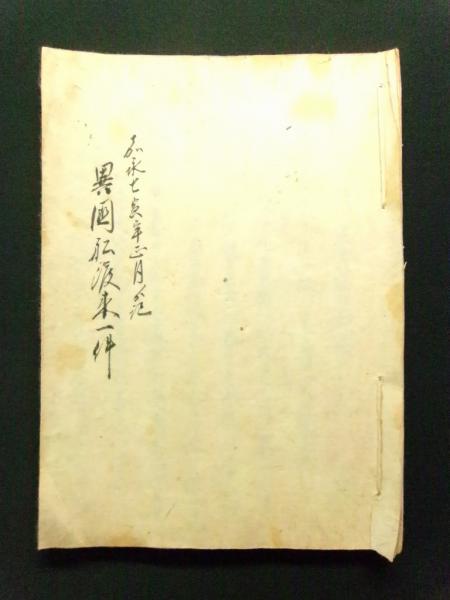 嘉永七寅年正月ゟ記
異國舩渡来一件